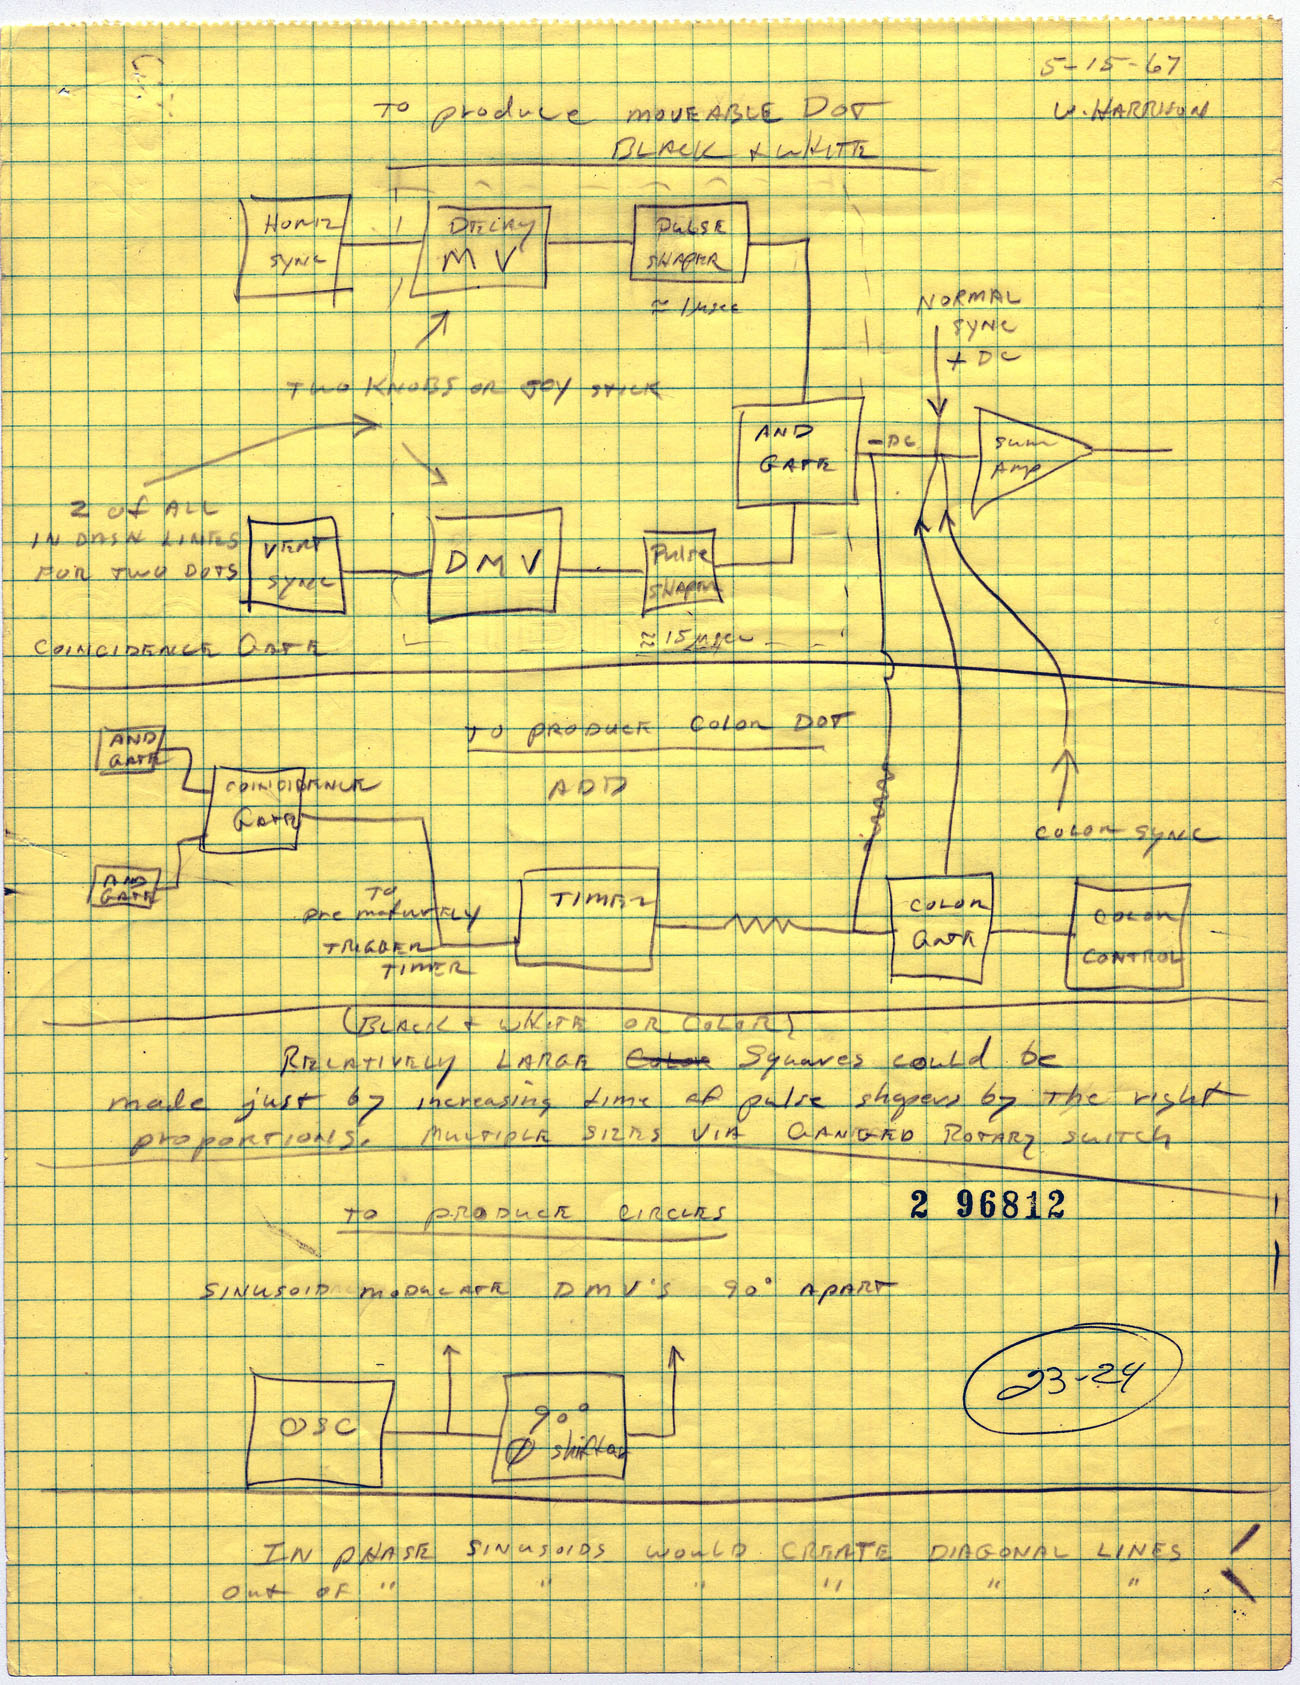 5-15-67
W. HARRISON
TO produce MOVEABLE DOT
BLACK + WHITE
HORIZ
SYNC
DELAY
MV
PULSE
SHAPER
≈ 1 μsec
NORMAL
SYNC
+ DC
TWO KNOBS OR JOY STICK
AND
GATE
-DC
SUM
AMP
2 of ALL
IN DASH LINES
FOR TWO DOTS
VERT
SYNC
DMV
Pulse
SHAPER
≈ 15 μsec
COINCIDENCE GATE
TO PRODUCE COLOR DOT
ADD
AND
GATE
COINCIDENCE
GATE
AND
GATE
COLOR SYNC
TO
prematurely
TRIGGER
TIMER
TIMER
COLOR
GATE
COLOR
CONTROL
(BLACK + WHITE OR COLOR)
RELATIVELY LARGE Color Squares could be
made just by increasing time of pulse shapers by the right
proportions. MULTIPLE SIZES VIA GANGED ROTARY SWITCH
2 96812
TO PRODUCE CIRCLES
SINUSOID MODULATE DMV'S 90° APART
23-24
OSC
90°
Ø shifter
IN PHASE SINUSOIDS WOULD CREATE DIAGONAL LINES
OUT OF " " " " " "